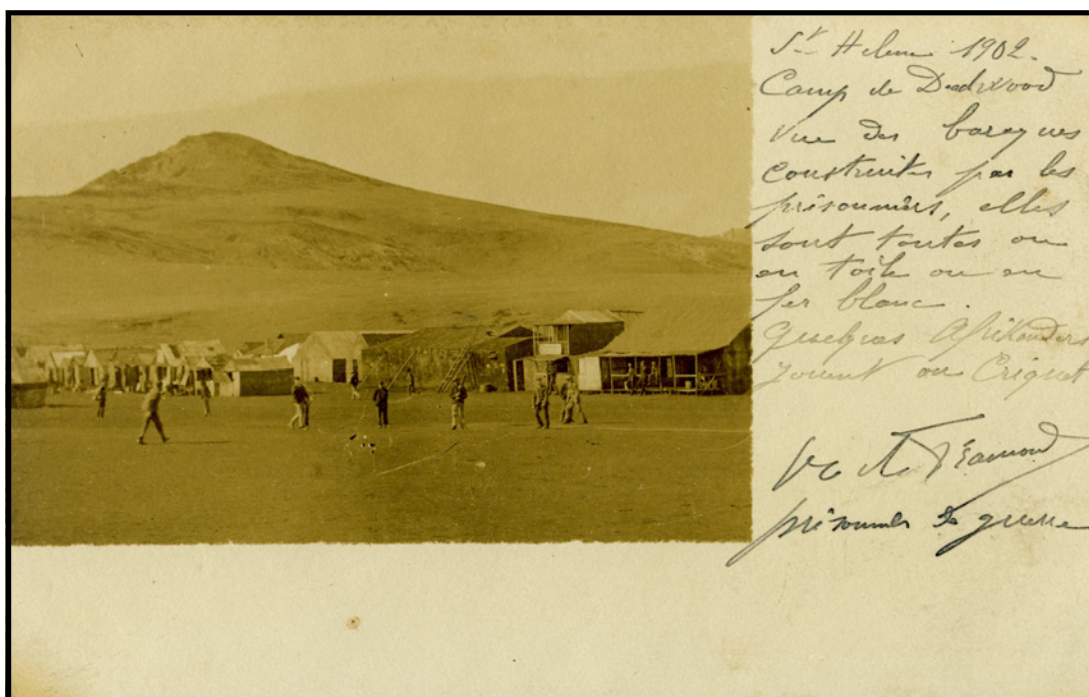 St Helene 1902.
Camp de Deadwood
Vue des baraques
construites par les
prisonniers, elles
sont toutes ou
en toile ou en
fer blanc.
Quelques Afrikanders
jouent au Criquet
prisonnier de guerre